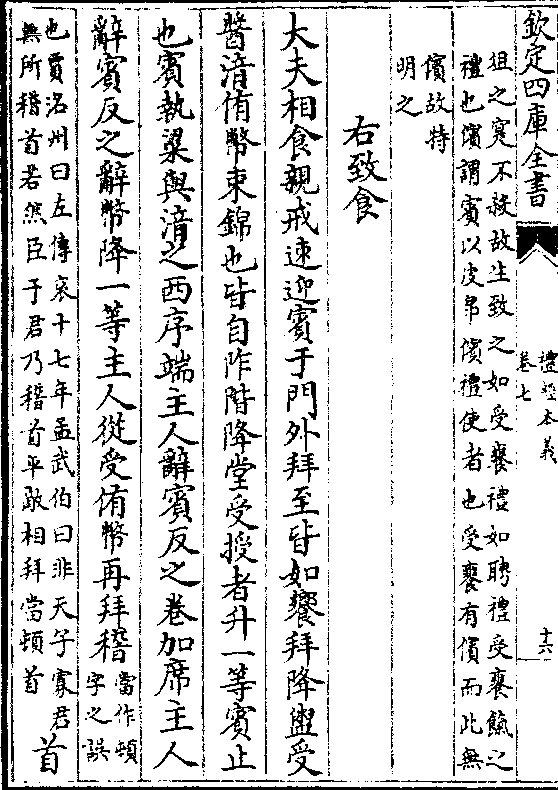 欽定四庫全書
禮經本義
卷七
十六
俎之實不殺故生致之如受饔禮如聘禮受饔餼之
禮也儐謂賓以皮帛儐禮使者也受饔有儐而此無
儐故特
明之
右致食
大夫相食親戒速迎賓于門外拜至皆如饗拜降盥受
醬湆侑幣束錦也皆自阼階降堂受授者升一等賓止
也賓執粱與湆之西序端主人辭賓反之卷加席主人
辭賓反之辭幣降一等主人從受侑幣再拜稽
當作頓
字之誤
也賈洺州曰左傳哀十七年孟武伯曰非天子寡君
無所稽首若然臣于君乃稽首平敵相拜當頓首
首